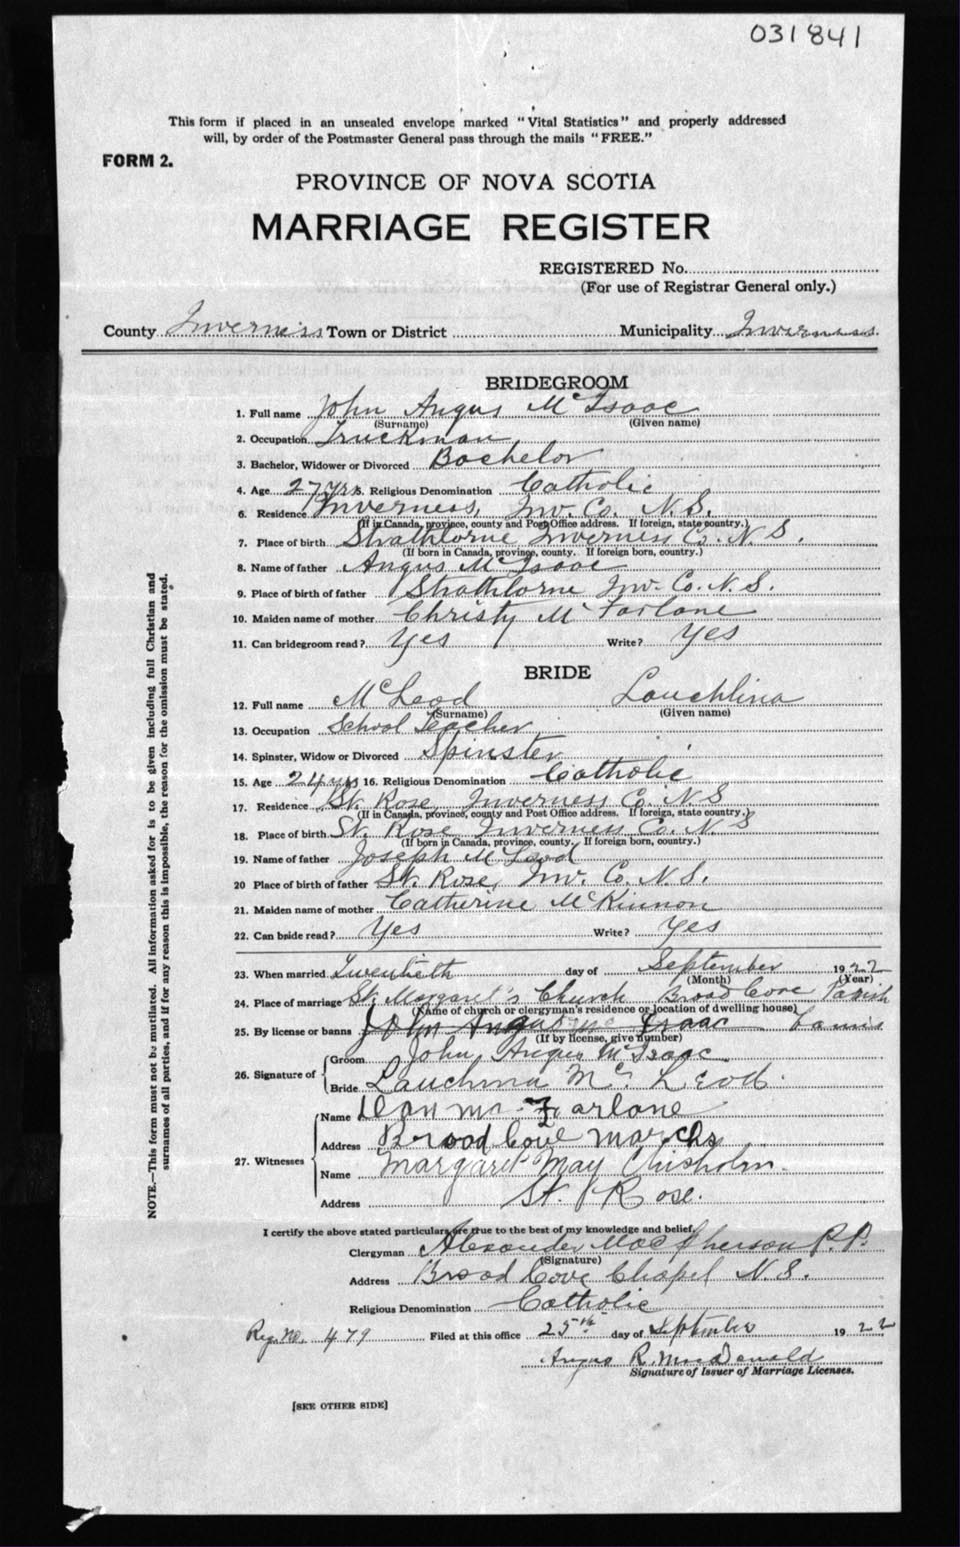 031841
This form if placed in an unsealed envelope marked "Vital Statistics" and properly addressed
will, by order of the Postmaster General pass through the mails "FREE."
FORM 2.
PROVINCE OF NOVA SCOTIA
MARRIAGE REGISTER
REGISTERED No.
(For use of Registrar General only.)
County Inverness Town or District Municipality Inverness.
BRIDEGROOM
1. Full name John Angus McIsaac
(Surname) (Given name)
2. Occupation Truckman
3. Bachelor, Widower or Divorced Bachelor
4. Age 27 yrs 5. Religious Denomination Catholic
6. Residence Inverness, Inv. Co. N.S.
(If in Canada, province, county and Post Office address. If foreign, state country.)
7. Place of birth Strathlorne Inverness Co. N.S.
(If born in Canada, province, county. If foreign born, country.)
8. Name of father Angus McIsaac
9. Place of birth of father Strathlorne Inv. Co. N.S.
10. Maiden name of mother Christy McFarlane
11. Can bridegroom read? Yes Write? Yes
BRIDE
12. Full name McLeod Lauchlina
(Surname) (Given name)
13. Occupation School Teacher
14. Spinster, Widow or Divorced Spinster
15. Age 24 yrs 16. Religious Denomination Catholic
17. Residence St. Rose, Inverness Co. N.S
(If in Canada, province, county and Post Office address. If foreign, state country.)
18. Place of birth St. Rose Inverness Co. N. S
(If born in Canada, province, county. If foreign born, country.)
19. Name of father Joseph McLeod
20 Place of birth of father St. Rose, Inv. Co. N.S.
21. Maiden name of mother Catherine McKinnon
22. Can bride read? Yes Write? Yes
23. When married Twentieth day of September 1922
(Month) (Year)
24. Place of marriage St. Margaret's Church Broad Cove Parish
(Name of church or clergyman's residence or location of dwelling house)
25. By license or banns John Angus Mc Isaac banns
(If by license, give number)
26. Signature of Groom John Angus McIsaac
Bride Lauchlina Mc Leod.
27. Witnesses Name Dan Mc Farlane
Address Broad Cove Marsh
Name Margaret May Chisholm.
Address St. Rose.
I certify the above stated particulars are true to the best of my knowledge and belief.
Clergyman Alexander MacPherson P.P.
(Signature)
Address Broad Cove Chapel N.S.
Religious Denomination Catholic
Reg. No. 479 Filed at this office 25th day of September 1922
Angus R. MacDonald
Signature of Issuer of Marriage Licenses.
[SEE OTHER SIDE]
NOTE.—This form must not be mutilated. All information asked for is to be given including full Christian and
surnames of all parties, and if for any reason this is impossible, the reason for the omission must be stated.